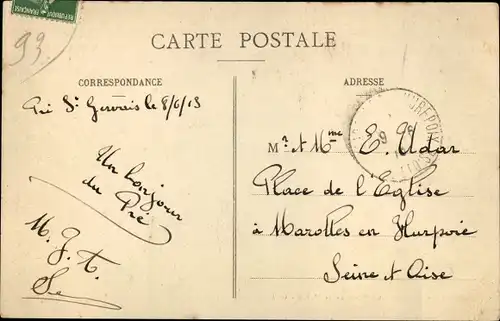 RÉPUBLIQUE FRANÇAISE
93.
CARTE POSTALE
CORRESPONDANCE
Pré St Gervais le 8/6/13
Un bonjour
du Pré
M. J. t.
ADRESSE
Mr et Mme E. Udar
Place de l'Eglise
à Marolles en Hurpoie
Seine et Oise